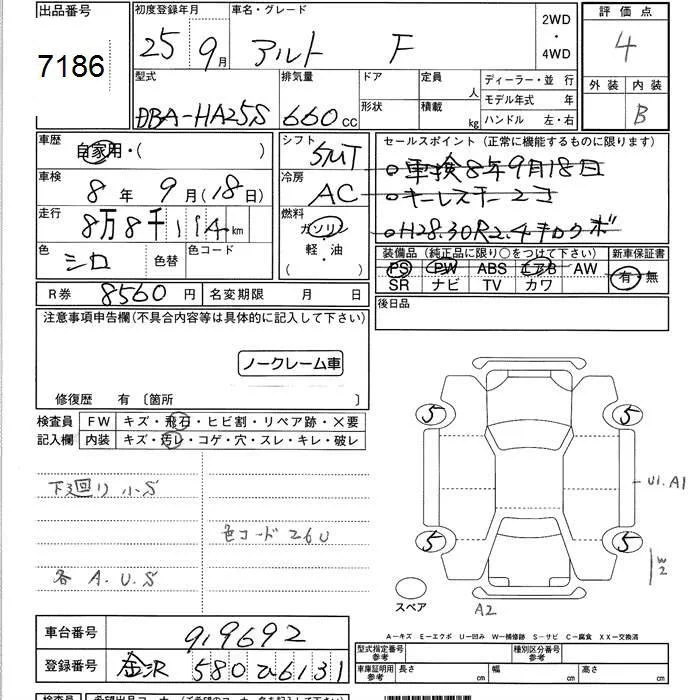 出品番号
7186
初度登録年月
25 9月
車名・グレード
アルト F
2WD
・
4WD
評価点
4
外装 内装
B
型式
DBA-HA25S
排気量
660 cc
ドア
形状
定員
人
積載
kg
ディーラー・並 行
モデル年式 年
ハンドル 左・右
車歴
自家用・( )
車検
8年 9月(18日)
走行
8万8千114km
色
シロ
色替
色コード
シフト
5MT
冷房
AC
燃料
ガソリン
・
軽・油
( )
セールスポイント (正常に機能するものに限ります)
○車検8年9月18日
○キーレスキー2コ
○H28.30R2.4キロクボ
装備品 (純正品に限り○をつけて下さい)
新車保証書
PS PW ABS エアB AW
有・無
SR ナビ TV カワ
後日品
R券 8560円
名変期限 月 日
注意事項申告欄(不具合内容等は具体的に記入して下さい)
ノークレーム車
修復歴 有 〔箇所 〕
検査員
記入欄
FW キズ・飛石・ヒビ割・リペア跡・×要
内装 キズ・汚レ・コゲ・穴・スレ・キレ・破レ
下廻り小S
色コード 26U
各 A.U.S
5 5
5 5
U1.A1
W2
A2
スペア
車台番号
919692
登録番号
金沢 580 み6131
A－キズ E－エクボ U－凹み W－補修跡 S－サビ C－腐食 XX－交換済
型式指定番号
参考
種別区分番号
参考
車庫証明用
参考
長さ
幅
高さ